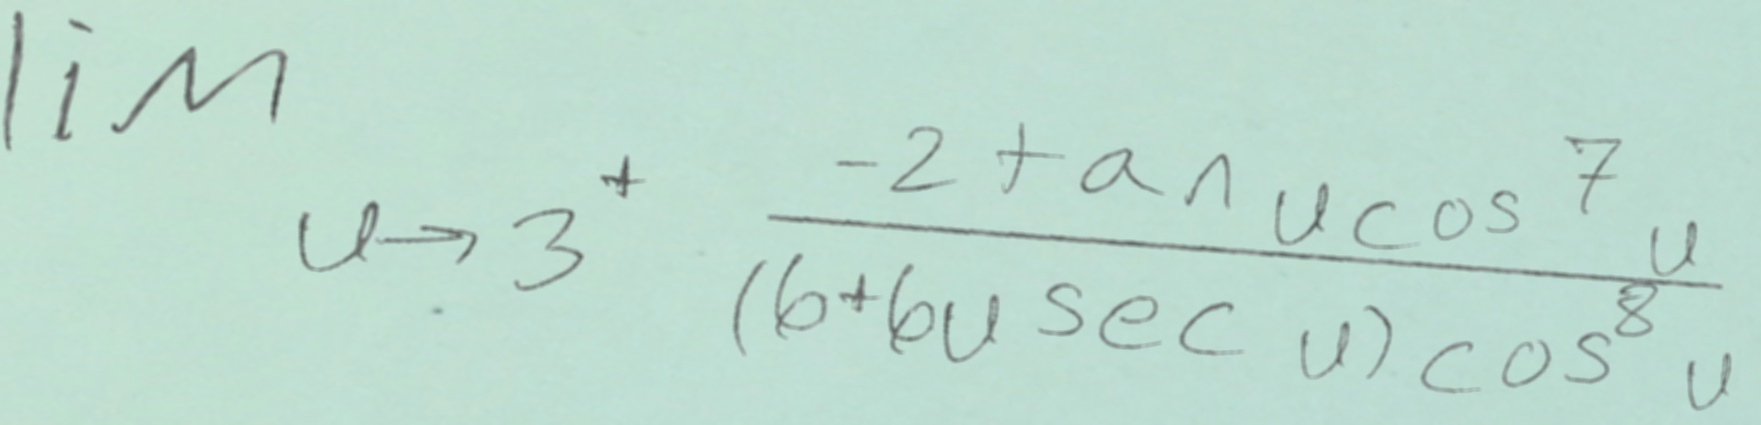 \lim_{u \to 3^+} \frac{-2 \tan u \cos^7 u}{(6+6u \sec u) \cos^8 u}